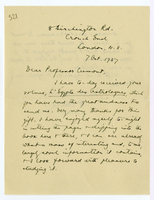 8 Birchington Rd.
Crouch End
London, N. 8
7 Oct. 1937
Dear Professor Cumont,
I have to-day received your
volume, L'Égypte des Astrologues which
you have had the great kindness to
send me. Very many thanks for this
gift. I have enjoyed myself to-night
in cutting the pages & dipping into the
book here & there, & I can see already
what a mass of interesting and, to me
largely novel information it contains
& I look forward with pleasure to
studying it.